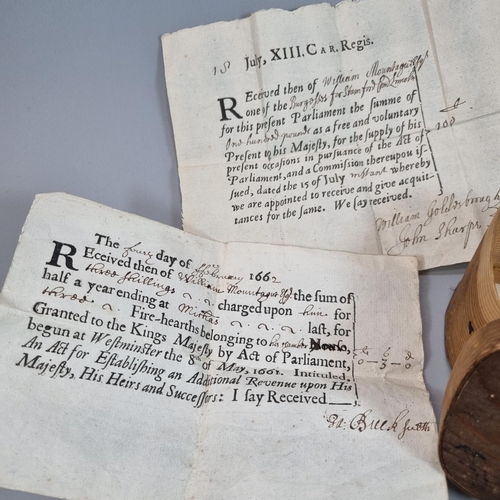 18 July, XIII. CAR. Regis.
REceived then of William Mountagu Esqr
one of the Burgesses for Stamford Com Lincoln
for this present Parliament the summe of
One hundred pounds as a free and voluntary
Present to his Majesty, for the supply of his
present occasions in pursuance of the Act of
Parliament, and a Commission thereupon is-
sued, dated the 15 of July instant whereby
we are appointed to receive and give acquit-
tances for the same. We say received.
100
William Goldesbrough
John Sharpe
The day of February 1662
REceived then of William Mountagu Esqr the sum of
three shillings charged upon him for
half a year ending at last, for
three Fire-hearths belonging to his House,
Granted to the Kings Majesty by Act of Parliament,
begun at Westminster the 8 of May, 1661. Intituled,
An Act for Establishing an Additional Revenue upon His
Majesty, His Heirs and Successors: I say Received
0—3—0